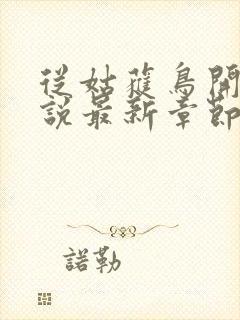 從姑蘿鳥開
說最新章節
諾勒